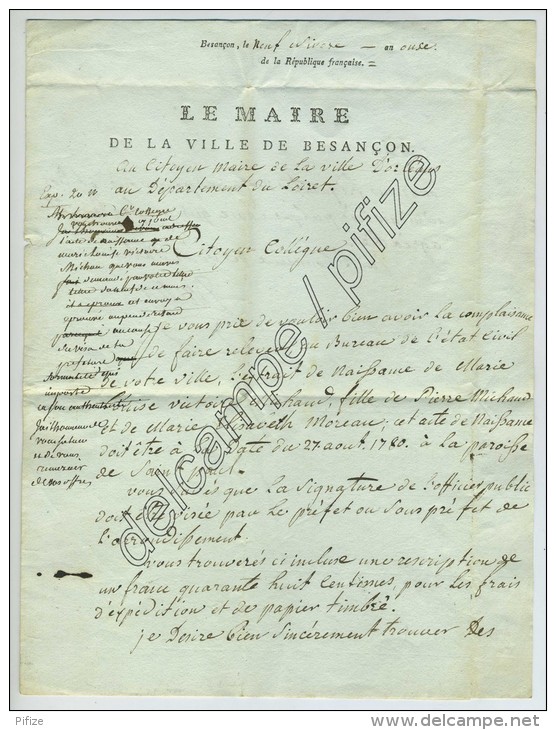 Besançon, le Neuf nivose an onze.
de la République française.
LE MAIRE
DE LA VILLE DE BESANÇON.
Au Citoyen maire de la ville D'orléans
au Département du Loiret.
Citoyen Collègue
je vous prie de vouloir bien avoir la complaisance
de faire relever au Bureau de l'état Civil
de votre ville, l'extrait de Naissance de Marie
Louise victoire Michaud, fille de Pierre Michaud
et de Marie Moreau; cet acte de Naissance
doit être à la date du 27 aout 1780. à la paroisse
de Saint
vous savés que la signature de l'officier public
doit être visée par le préfet ou sous préfet de
l'arrondissement.
vous trouverés ci incluse une rescription de
un franc quarante huit Centimes, pour les frais
d'expédition et de papier timbré.
je Desire bien sincérement trouver Des
Exp. 20 n
l'acte de naissance
Michau que vous
prefecture
formalité
importe
j'ai l'honneur de
vous saluer
et de vous
remercier
de vos offres
delcampe / pifize
Pifize
www.delcampe.net